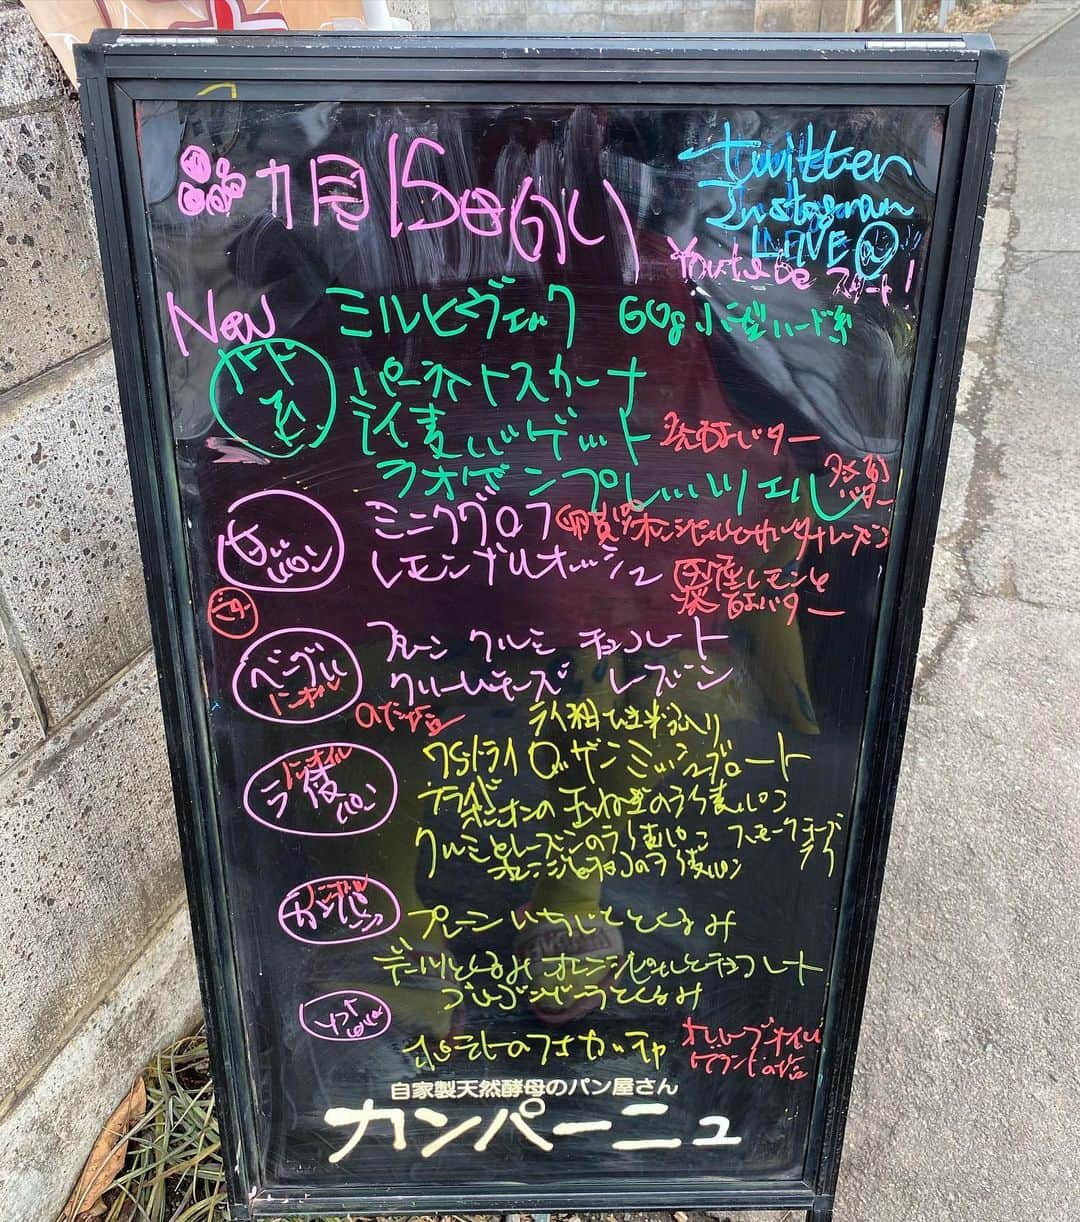 15日(水)
twitter
Instagram
LIVE
Youtube スタート!
New
ミルヒヴェック 60g 小型ハード系
ハード系
パーネトスカーナ
ライ麦バゲット 発酵バター
ラオゲンプレッツェル 発酵バター
甘いパン
ミニクグロフ
レモンブリオッシュ 国産レモンと
発酵バター
バター
ベーグル
ノンオイル
プレーン クルミ チョコレート
クリームチーズ レーズン
ライ粗びき粉入り
ノンオイル
ライ麦パン
75%ライ ロッゲンミッシュブロート
フライドオニオンの玉ねぎのライ麦パン
クルミとレーズンのライ麦パン スモークチーズライ
オレンジとのライ麦パン
ノンオイル
カンパ
プレーン いちじくとくるみ
デーツとくるみ オレンジピールとチョコレート
ゴルゴンゾーラとくるみ
ポテトのフォカッチャ オリーブオイル
自家製天然酵母のパン屋さん
カンパーニュ